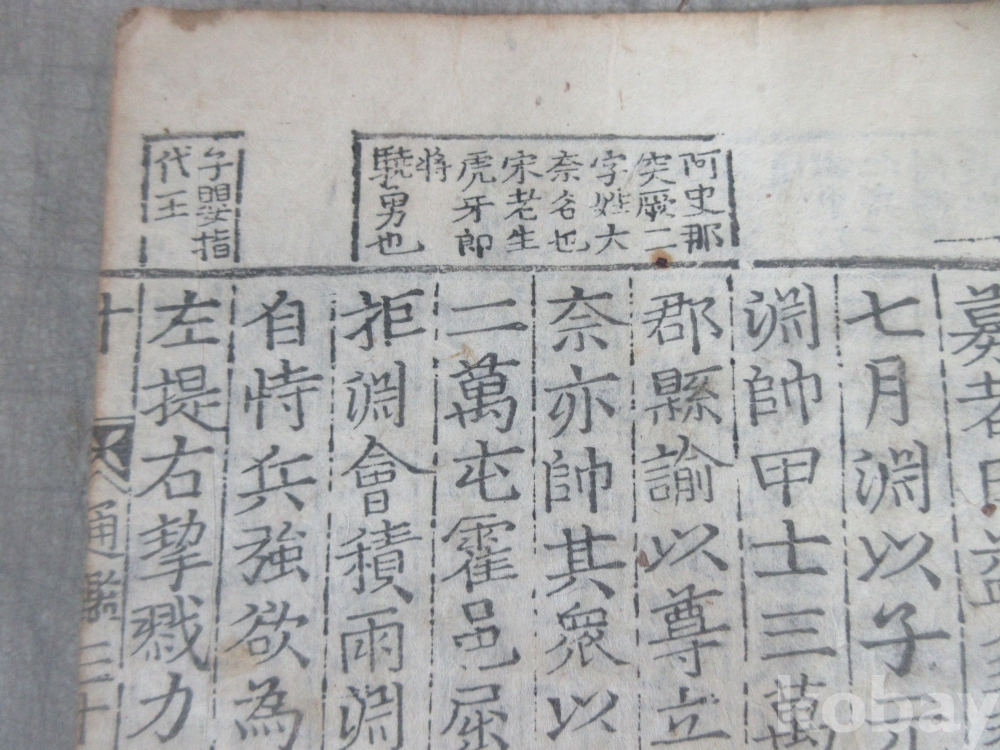 阿史那
突厥二
字姓大
奈名也
宋老生
虎牙郎
將
驍勇也
子嬰指
代王
七月淵以子
淵帥甲士三萬
郡縣諭以尊立
奈亦帥其衆以
二萬屯霍邑屈
拒淵會積雨淵
自恃兵強欲為
左提右挈戮力
通鑑三十
kobay